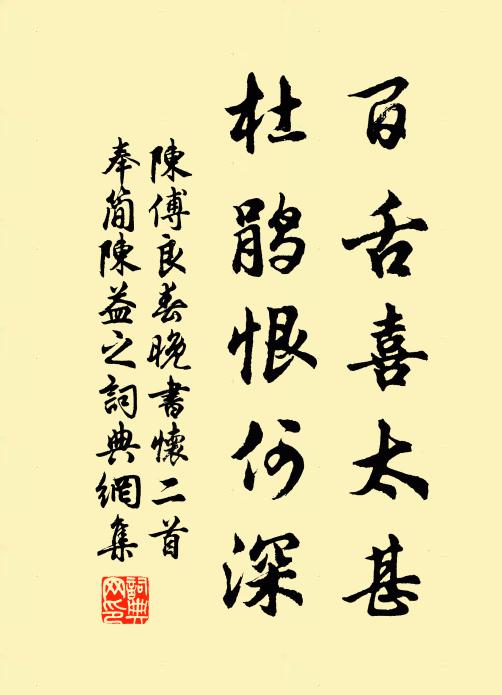 百舌喜太甚
杜鹃恨何深
陳傅良春晚書懷二首
奉簡陳益之詞典網集
詞典网印